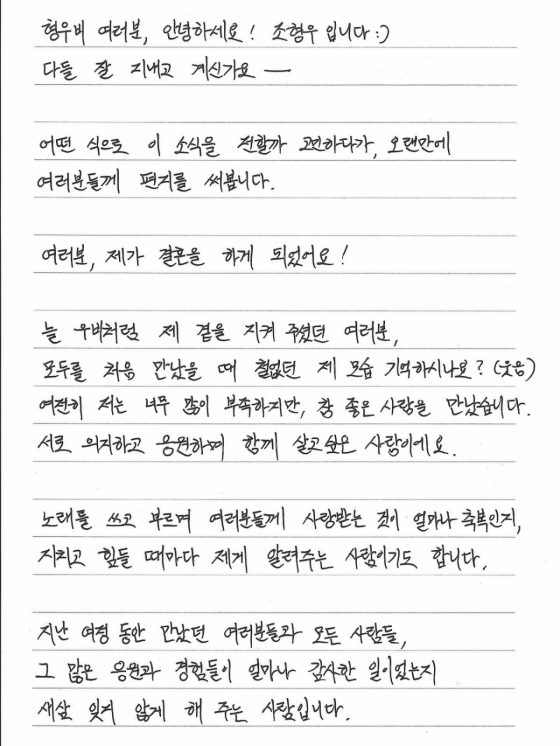 형우비 여러분, 안녕하세요! 조형우입니다:)
다들 잘 지내고 계신가요 —
어떤 식으로 이 소식을 전할까 고민하다가, 오랜만에
여러분들께 편지를 써봅니다.
여러분, 제가 결혼을 하게 되었어요!
늘 우비처럼 제 곁을 지켜 주셨던 여러분,
모두를 처음 만났을 때 철없던 제 모습 기억하시나요? (웃음)
여전히 저는 너무 많이 부족하지만, 참 좋은 사람을 만났습니다.
서로 의지하고 응원하며 함께 살고싶은 사람이에요.
노래를 쓰고 부르며 여러분들께 사랑받는 것이 얼마나 축복인지,
지치고 힘들 때마다 제게 알려주는 사람이기도 합니다.
지난 여정 동안 만났던 여러분들과 모든 사람들,
그 많은 응원과 경험들이 얼마나 감사한 일이었는지
새삼 잊지 않게 해 주는 사람입니다.